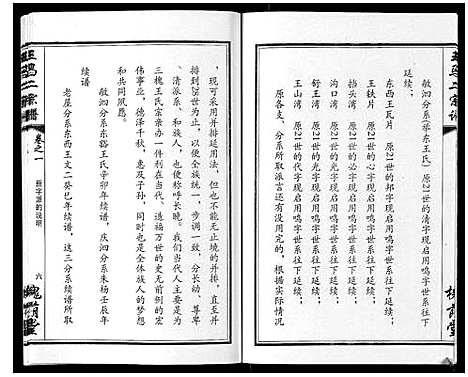 延续；
敏泗分系（举东王氏） 原21世的清字现启用鸣字世系往下
延续；
东西王瓦片 原21世的邦字现启用鸣字世系往下延续；
王铁片 原21世的心字现启用鸣字世系往下延续；
挡头湾 原21世的必字现启用鸣字世系往下延续；
沟口湾 原21世的少字现启用鸣字世系往下延续；
舒王湾 原21世的学字现启用鸣字世系往下延续；
王山湾 原21世的代字现启用鸣字世系往下延续；
原各支、分系所取派言还有没用完的，根据实际情况
，现可采用并排延用法，但也不能无止境的并排，直至并
排到25世为止，以便使全族统一、步调一致，分长动、尊卑
、清派系、和族人，也便称呼长晚。我们当代人主要是为
三槐王氏宗亲办一件继古人、造福万世的史无前例的宏
伟事业，德泽千秋，惠及子孙，同时也是全体族人的梦想
和共同夙愿。
续谱
敏泗分系东豁王氏辛卯年续谱，庆泗分系朱杨壬辰年
老屋分系东西王文二癸巳年续谱，这三分系续谱所取
卷之一
派字派的说明
六
槐荫堂